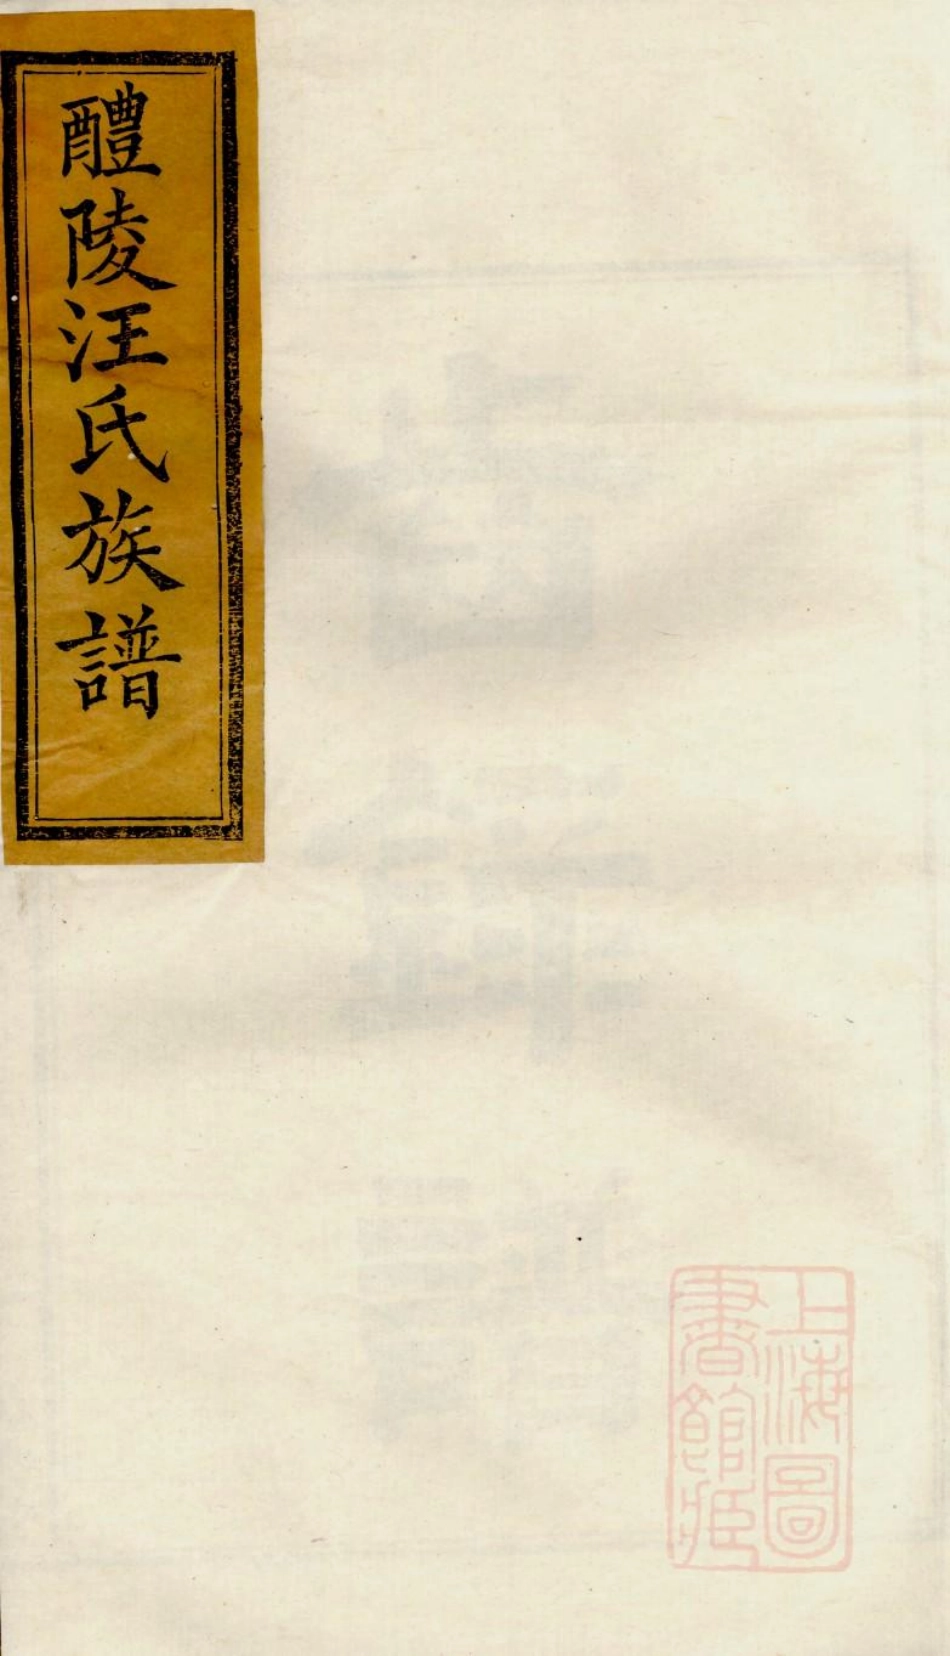 醴陵汪氏族譜
上海圖
書館藏